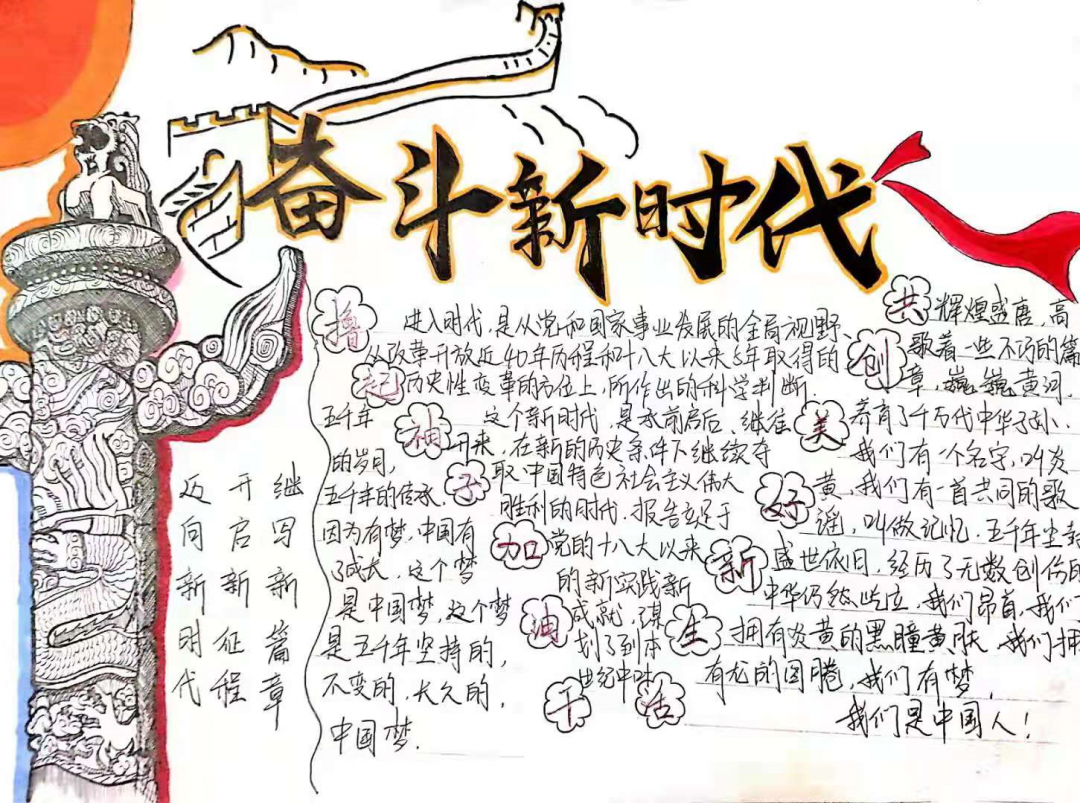 奋斗新时代
迈向新时代
开启新征程
继写新篇章
撸起袖子加油干
五千年
的岁月,
五千年的传承,
因为有梦,中国有
了成长,这个梦
是中国梦,这个梦
是五千年坚持的,
不变的,长久的,
中国梦.
进入时代,是从党和国家事业发展的全局视野、
从改革开放近40年历程和十八大以来5年取得的
历史性变革的方位上,所作出的科学判断.
这个新时代,是承前启后、继往
开来,在新的历史条件下继续夺
取中国特色社会主义伟大
胜利的时代.报告立足于
党的十八大以来
的新实践新
成就,谋
划了到本
世纪中叶
共创美好新生活
辉煌盛唐,高
歌着一些不巧的篇
章,巍巍黄河,
养育了千万代中华子孙.
我们有一个名字,叫炎
黄,我们有一首共同的歌
谣,叫做记忆.五千年
盛世依旧,经历了无数创伤的
中华仍然屹立,我们昂首,我们
拥有炎黄的黑瞳黄肤,我们拥
有龙的图腾,我们有梦,
我们是中国人!